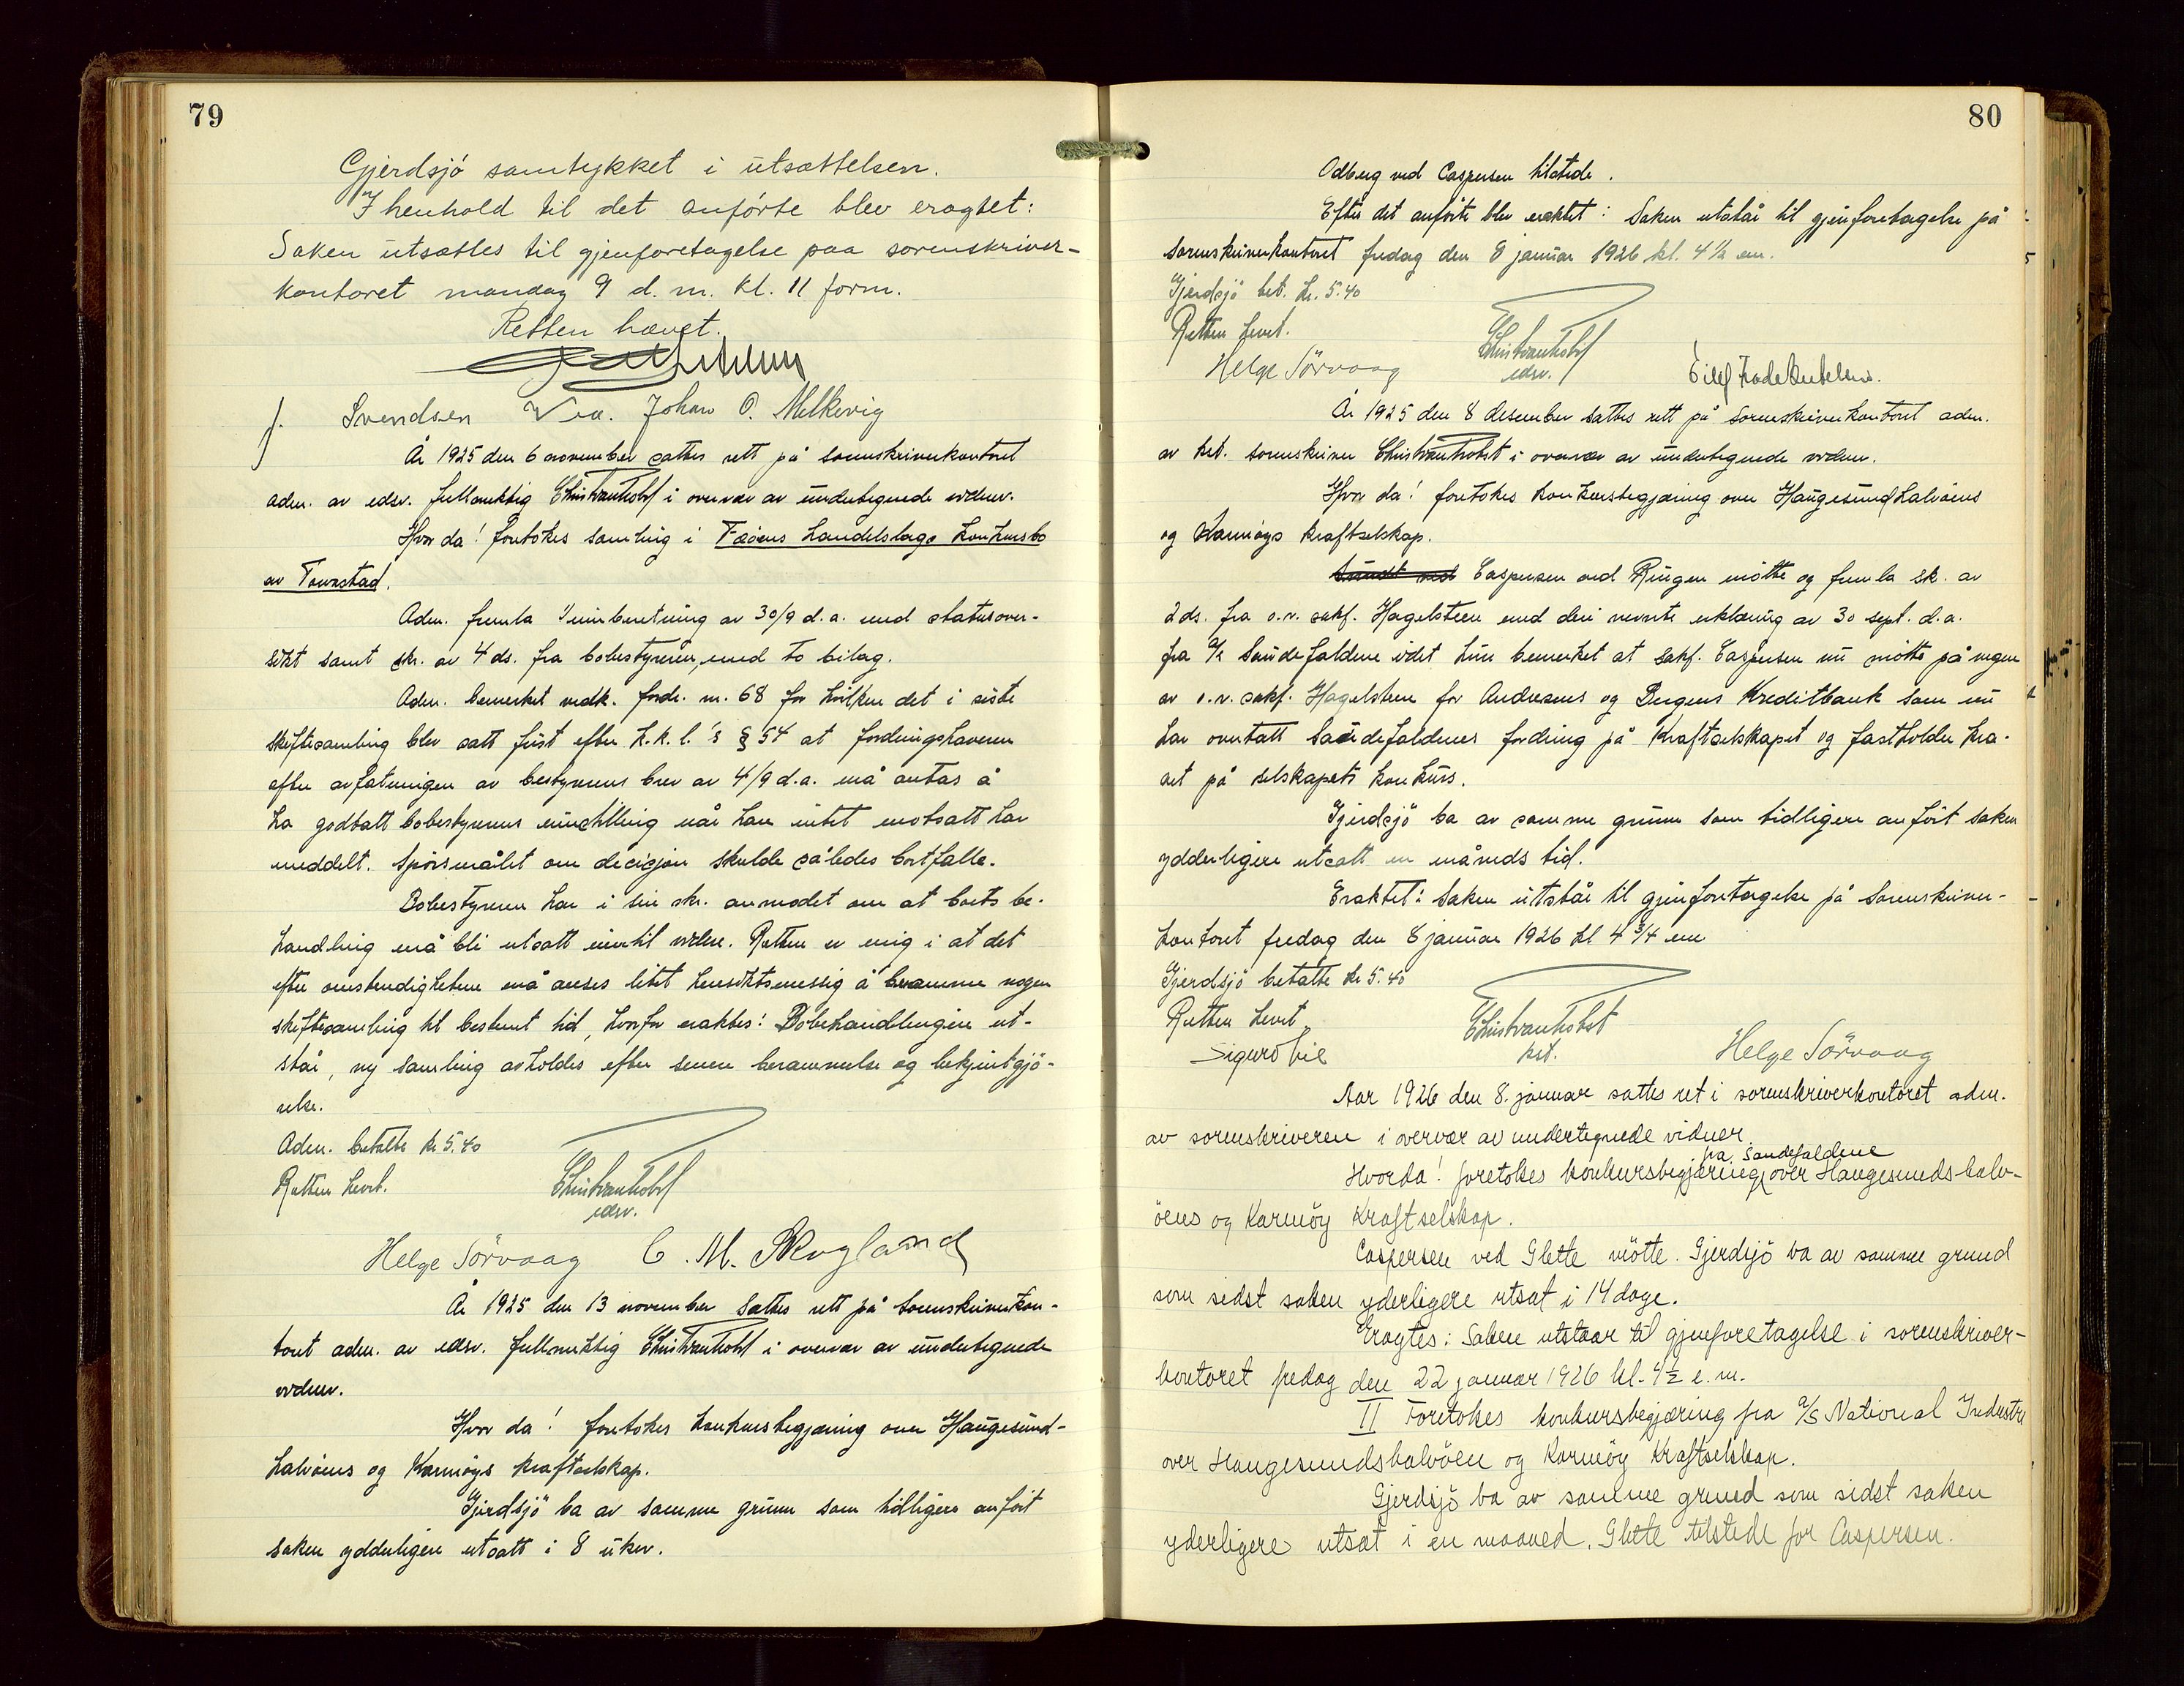 79
Gjerdsjö samtykket i utsættelsen.
I henhold til det anförte blev eragtet:
Saken utsættes til gjenforetagelse paa sorenskriver-
kontoret mandag 9 d. m. kl. 11 form.
Retten hævet.
J. Svendsen Johan O. Melkevig
År 1925 den 6 november sattes rett på sorenskriverkontoret
adm. av edsv. fullmektig i overvær av undertegnede vidner.
Hvor da! foretokes samling i Fæöens Handelslags konkursbo
av
Adm. fremla innberetning av 30/9 d.a. med statusover-
sikt samt skr. av 4 ds. fra bobestyreren, med to bilag.
Adm. bemerket vedk. fordr. nr. 68 for hvilken det i siste
skiftesamling blev satt frist efter k.k.l.'s § 54 at fordringshaveren
efter avfatningen av bestyrerens brev av 4/9 d.a. må antas å
ha godtatt bobestyrerens innstilling når han intet motsatt har
meddelt. Spörsmålet om decisjon skulde således bortfalle.
Bobestyreren har i sin skr. anmodet om at boets be-
handling må bli utsatt inntil videre. Retten er enig i at det
efter omstendighetene må anses litet hensiktsmessig å beramme nogen
skiftesamling til bestemt tid, hvorfor eraktes: Bobehandlingen ut-
står, ny samling avholdes efter senere berammelse og bekjentgjö-
relse.
Adm. betalte kr 5.40
Retten hevet.
edsv.
Helge Sörvaag C. M. Skogland
År 1925 den 13 november sattes rett på sorenskriverkon-
toret adm. av edsv. fullmektig i overvær av undertegnede
vidner.
Hvor da! foretokes konkursbegjæring over Haugesund-
halvöens og Karmöys kraftselskap.
Gjerdsjö ba av samme grunn som tidligere anfört
saken ydderligere utsatt i 8 uker.
80
Odberg ved Caspersen tilstede.
Efter det anförte blev eraktet: Saken utstår til gjenforetagelse på
sorenskriverkontoret fredag den 8 januar 1926 kl. 4 1/2 em.
Gjerdsjö bet. kr. 5.40
Retten hevet.
edsv.
Helge Sörvaag
År 1925 den 8 desember sattes rett på sorenskriverkontoret adm.
av kst. sorenskriver i overvær av undertegnede vidner.
Hvor da! foretokes konkursbegjæring over Haugesundhalvöens
og Karmöys kraftselskap.
Caspersen ved Ringen mötte og fremla sk. av
2 ds. fra o.r. sakf. Hagelsteen med deri nevnte erklæring av 30 sept. d.a.
fra A/S Saudefaldene idet hun bemerket at sakf. Caspersen nu mötte på vegne
av o.r. sakf. Hagelsteen for Andresens og Bergens Kreditbank som nu
har overtatt Saudefaldenes fordring på Kraftselskapet og fastholder kra-
vet på selskapets konkurs.
Gjerdsjö ba av samme grunn som tidligere anfört saken
ydderligere utsatt en måneds tid.
Eraktet: Saken utstår til gjenforetagelse på sorenskriver-
kontoret fredag den 8 januar 1926 kl 4 3/4 em
Gjerdsjö betalte kr 5.40
Retten hevet
kst.
Sigurd Lie Helge Sörvaag
Aar 1926 den 8. januar sattes ret i sorenskriverkontoret adm.
av sorenskriveren i overvær av undertegnede vidner.
fra Saudefaldene
Hvorda! foretokes konkursbegjæring over Haugesunds-halv-
öens og Karmöy Kraftselskap.
Caspersen ved Glette mötte. Gjerdsjö ba av samme grund
som sidst saken yderligere utsat i 14 dage.
Eragtes: Saken utstaar til gjenforetagelse i sorenskriver-
kontoret fredag den 22 januar 1926 kl. 4 1/2 e.m.
II Foretokes konkursbegjæring fra A/S National Industri
over Haugesundshalvöen og Karmöy Kraftselskap.
Gjerdsjö ba av samme grund som sidst saken
yderligere utsat i en maaned. Glette tilstede for Caspersen.